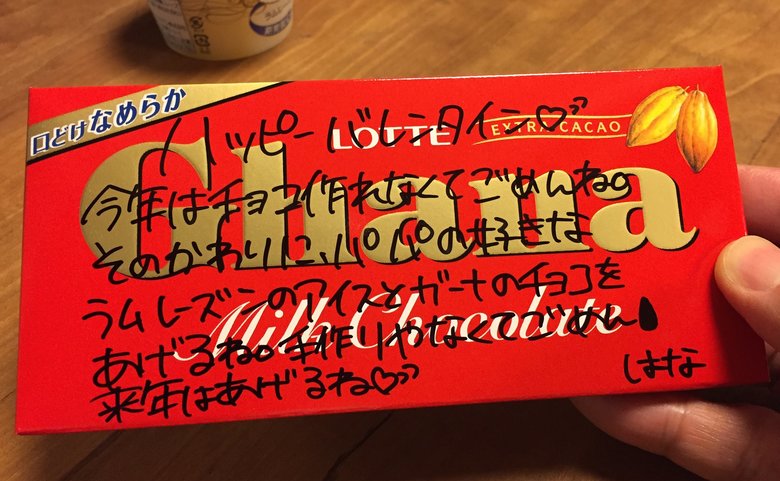 口どけなめらか
LOTTE
EXTRA CACAO
Ghana
Milk Chocolate
ハッピーバレンタイン♡
今年はチョコ作れなくてごめんね。
そのかわりに、パパの好きな
ラムレーズンのアイスとガーナのチョコを
あげるね。手作りやなくてごめん
来年はあげるね♡
はな